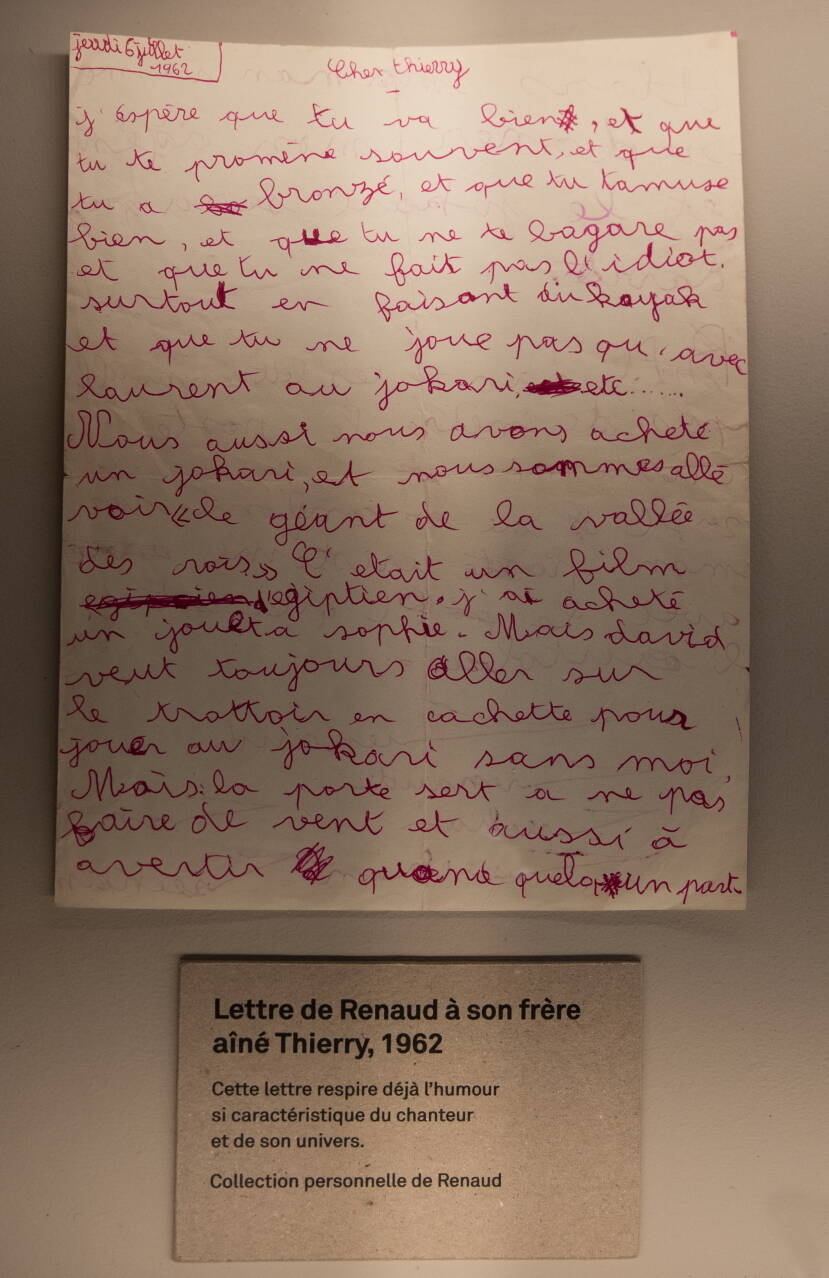 jeudi 6 juillet
1962
Cher thierry
j'éspère que tu va bien, et que
tu te promène souvent, et que
tu a bronzé, et que tu tamuse
bien, et que tu ne te bagare pas
et que tu ne fait pas l'idiot.
surtout en faisant du kayak
et que tu ne joue pas qu'avec
laurent au jokari, etc......
Nous aussi nous avons acheté
un jokari, et nous sommes allé
voir «le géant de la vallée
des rois» C'etait un film
egiptien. j'ai acheté
un jouet a sophie. Mais david
veut toujours aller sur
le trottoir en cachette pour
jouer au jokari sans moi,
Mais la porte sert a ne pas
faire de vent et aussi à
avertir quand quelqu'un part.
Lettre de Renaud à son frère
aîné Thierry, 1962
Cette lettre respire déjà l'humour
si caractéristique du chanteur
et de son univers.
Collection personnelle de Renaud